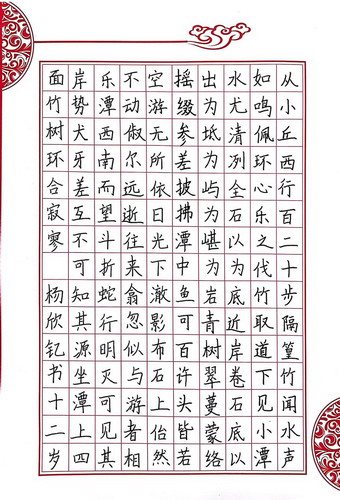 从小丘西行百二十步隔篁竹闻水声
如鸣佩环心乐之伐竹取道下见小潭
水尤清冽全石以为底近岸卷石底以
出为坻为屿为嵁为岩青树翠蔓蒙络
摇缀参差披拂潭中鱼可百许头皆若
空游无所依日光下澈影布石上佁然
不动俶尔远逝往来翕忽似与游者相
乐潭西南而望斗折蛇行明灭可见其
岸势犬牙差互不可知其源坐潭上四
面竹树环合寂寥 杨欣钇书十二岁